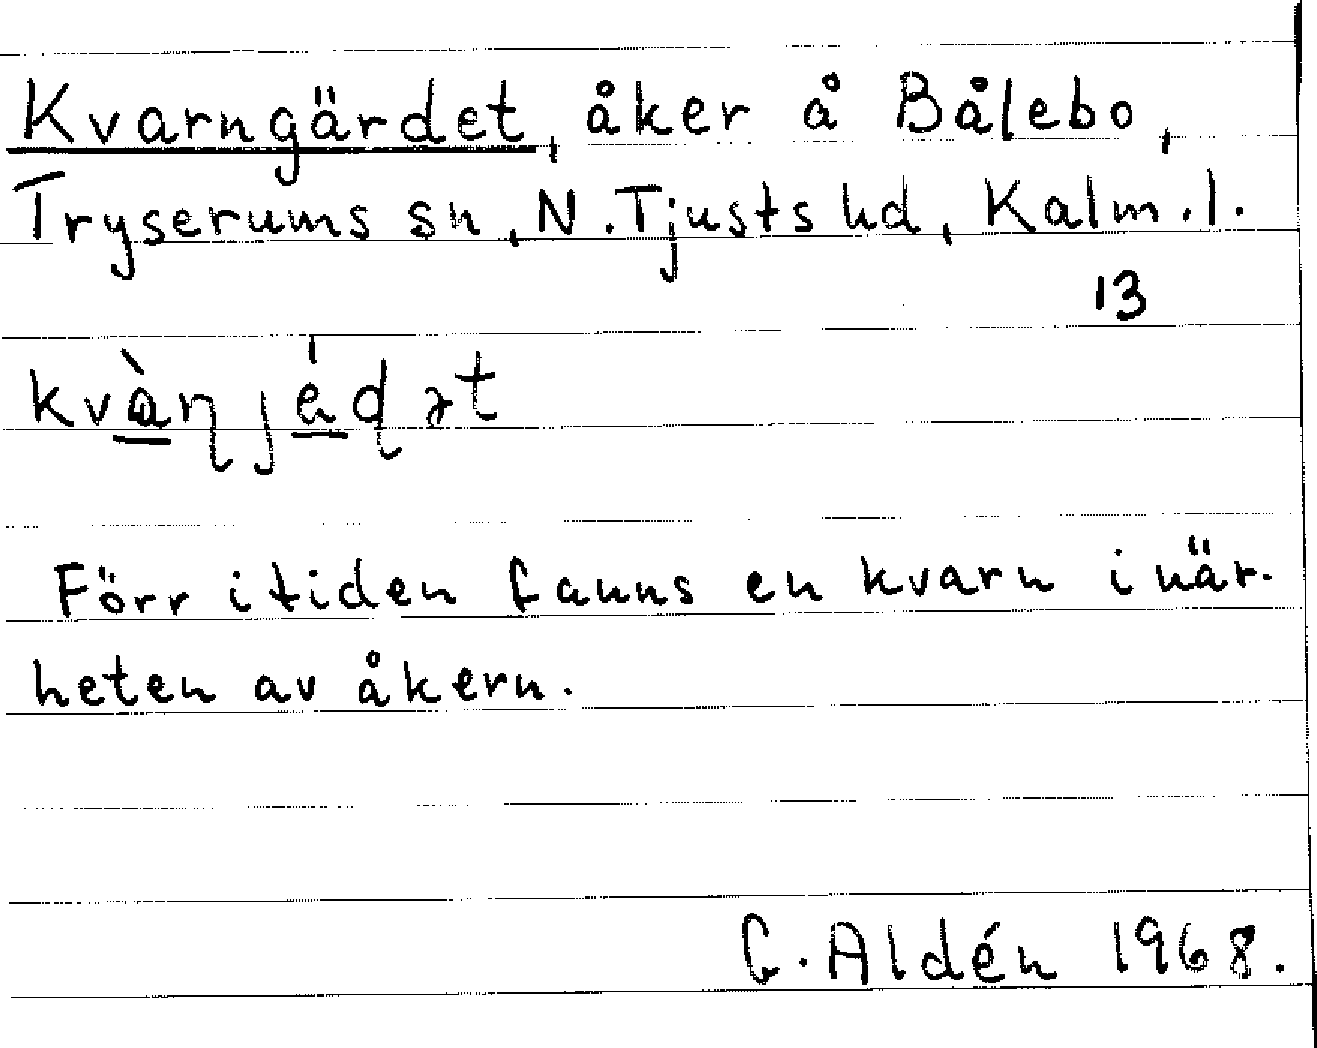 Kvarngärdet, åker å Bålebo,
Tryserums sn, N. Tjusts hd, Kalm. l.
13
kvàɳjédət
Förr i tiden fanns en kvarn i när-
heten av åkern.
G. Aldén 1968.